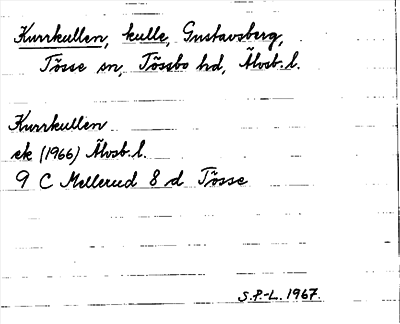 Kurrkullen, kulle, Gustavsberg,
Tösse sn, Tössbo hd, Älvsb. l.
Kurrkullen
ek (1966) Älvsb. l.
9 C Mellerud 8 d Tösse
S.P.-L. 1967.